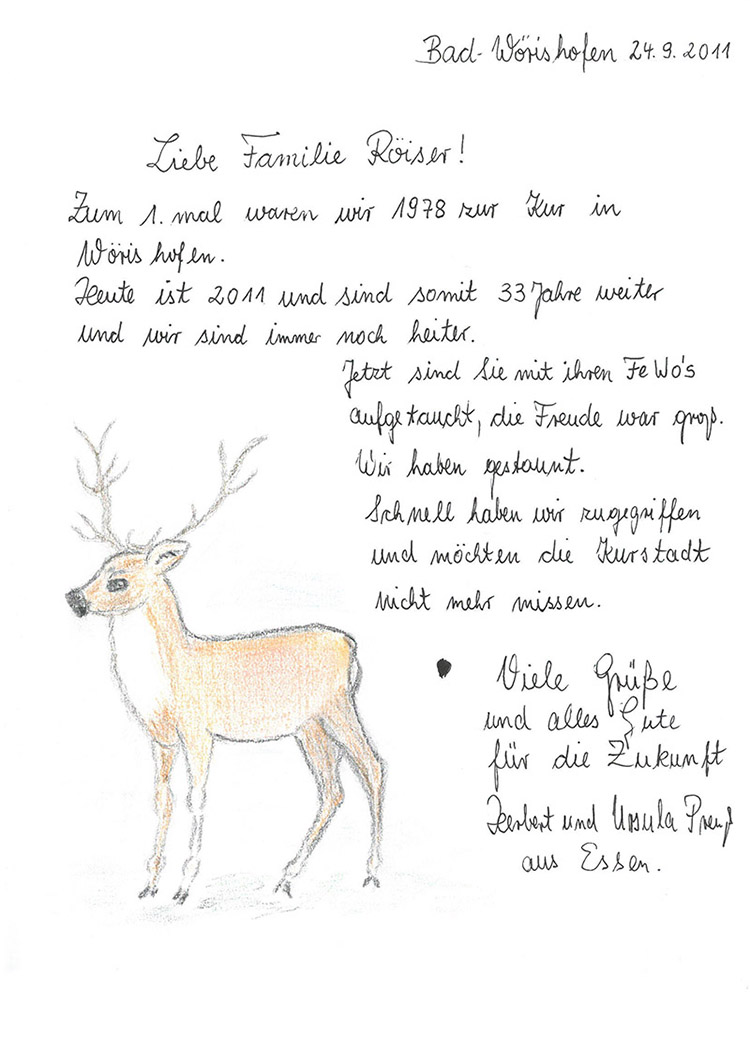 Bad-Wörishofen 24.9.2011
Liebe Familie Röiser!
Zum 1. mal waren wir 1978 zur Kur in
Wörishofen.
Heute ist 2011 und sind somit 33 Jahre weiter
und wir sind immer noch heiter.
Jetzt sind Sie mit ihren FeWo's
aufgetaucht, die Freude war groß.
Wir haben gestaunt.
Schnell haben wir zugegriffen
und möchten die Kurstadt
nicht mehr missen.
Viele Grüße
und alles Gute
für die Zukunft
Herbert und Ursula Preuß
aus Essen.